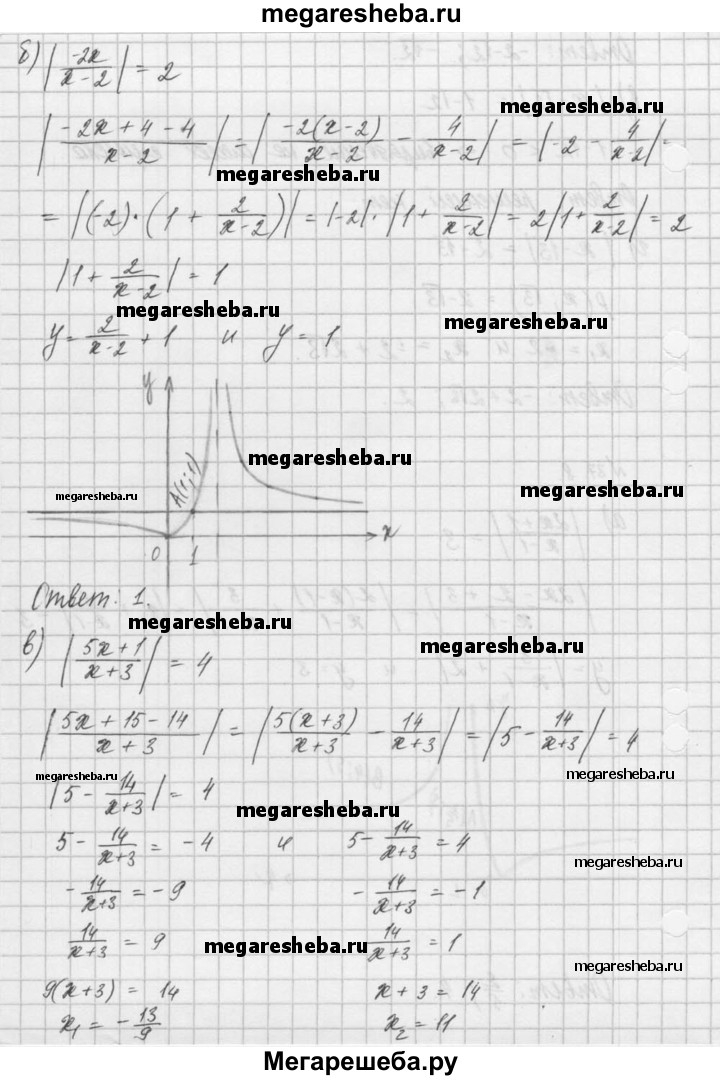 megaresheba.ru
б) |-2x/(x-2)| = 2
megaresheba.ru
|(-2x+4-4)/(x-2)| = |-2(x-2)/(x-2) - 4/(x-2)| = |-2 - 4/(x-2)| =
megaresheba.ru
= |(-2)·(1 + 2/(x-2))| = |-2|·|1 + 2/(x-2)| = 2|1 + 2/(x-2)| = 2
|1 + 2/(x-2)| = 1
megaresheba.ru
megaresheba.ru
y = 2/(x-2) + 1 и y = 1
y
A(1;1)
megaresheba.ru
megaresheba.ru
megaresheba.ru
0 1 x
Ответ: 1.
megaresheba.ru
в) |(5x+1)/(x+3)| = 4
megaresheba.ru
|(5x+15-14)/(x+3)| = |5(x+3)/(x+3) - 14/(x+3)| = |5 - 14/(x+3)| = 4
megaresheba.ru
megaresheba.ru
|5 - 14/(x+3)| = 4
megaresheba.ru
5 - 14/(x+3) = -4 и 5 - 14/(x+3) = 4
megaresheba.ru
-14/(x+3) = -9 -14/(x+3) = -1
14/(x+3) = 9 14/(x+3) = 1
megaresheba.ru
megaresheba.ru
9(x+3) = 14 x+3 = 14
x₁ = -13/9 x₂ = 11
Мегарешеба.ру